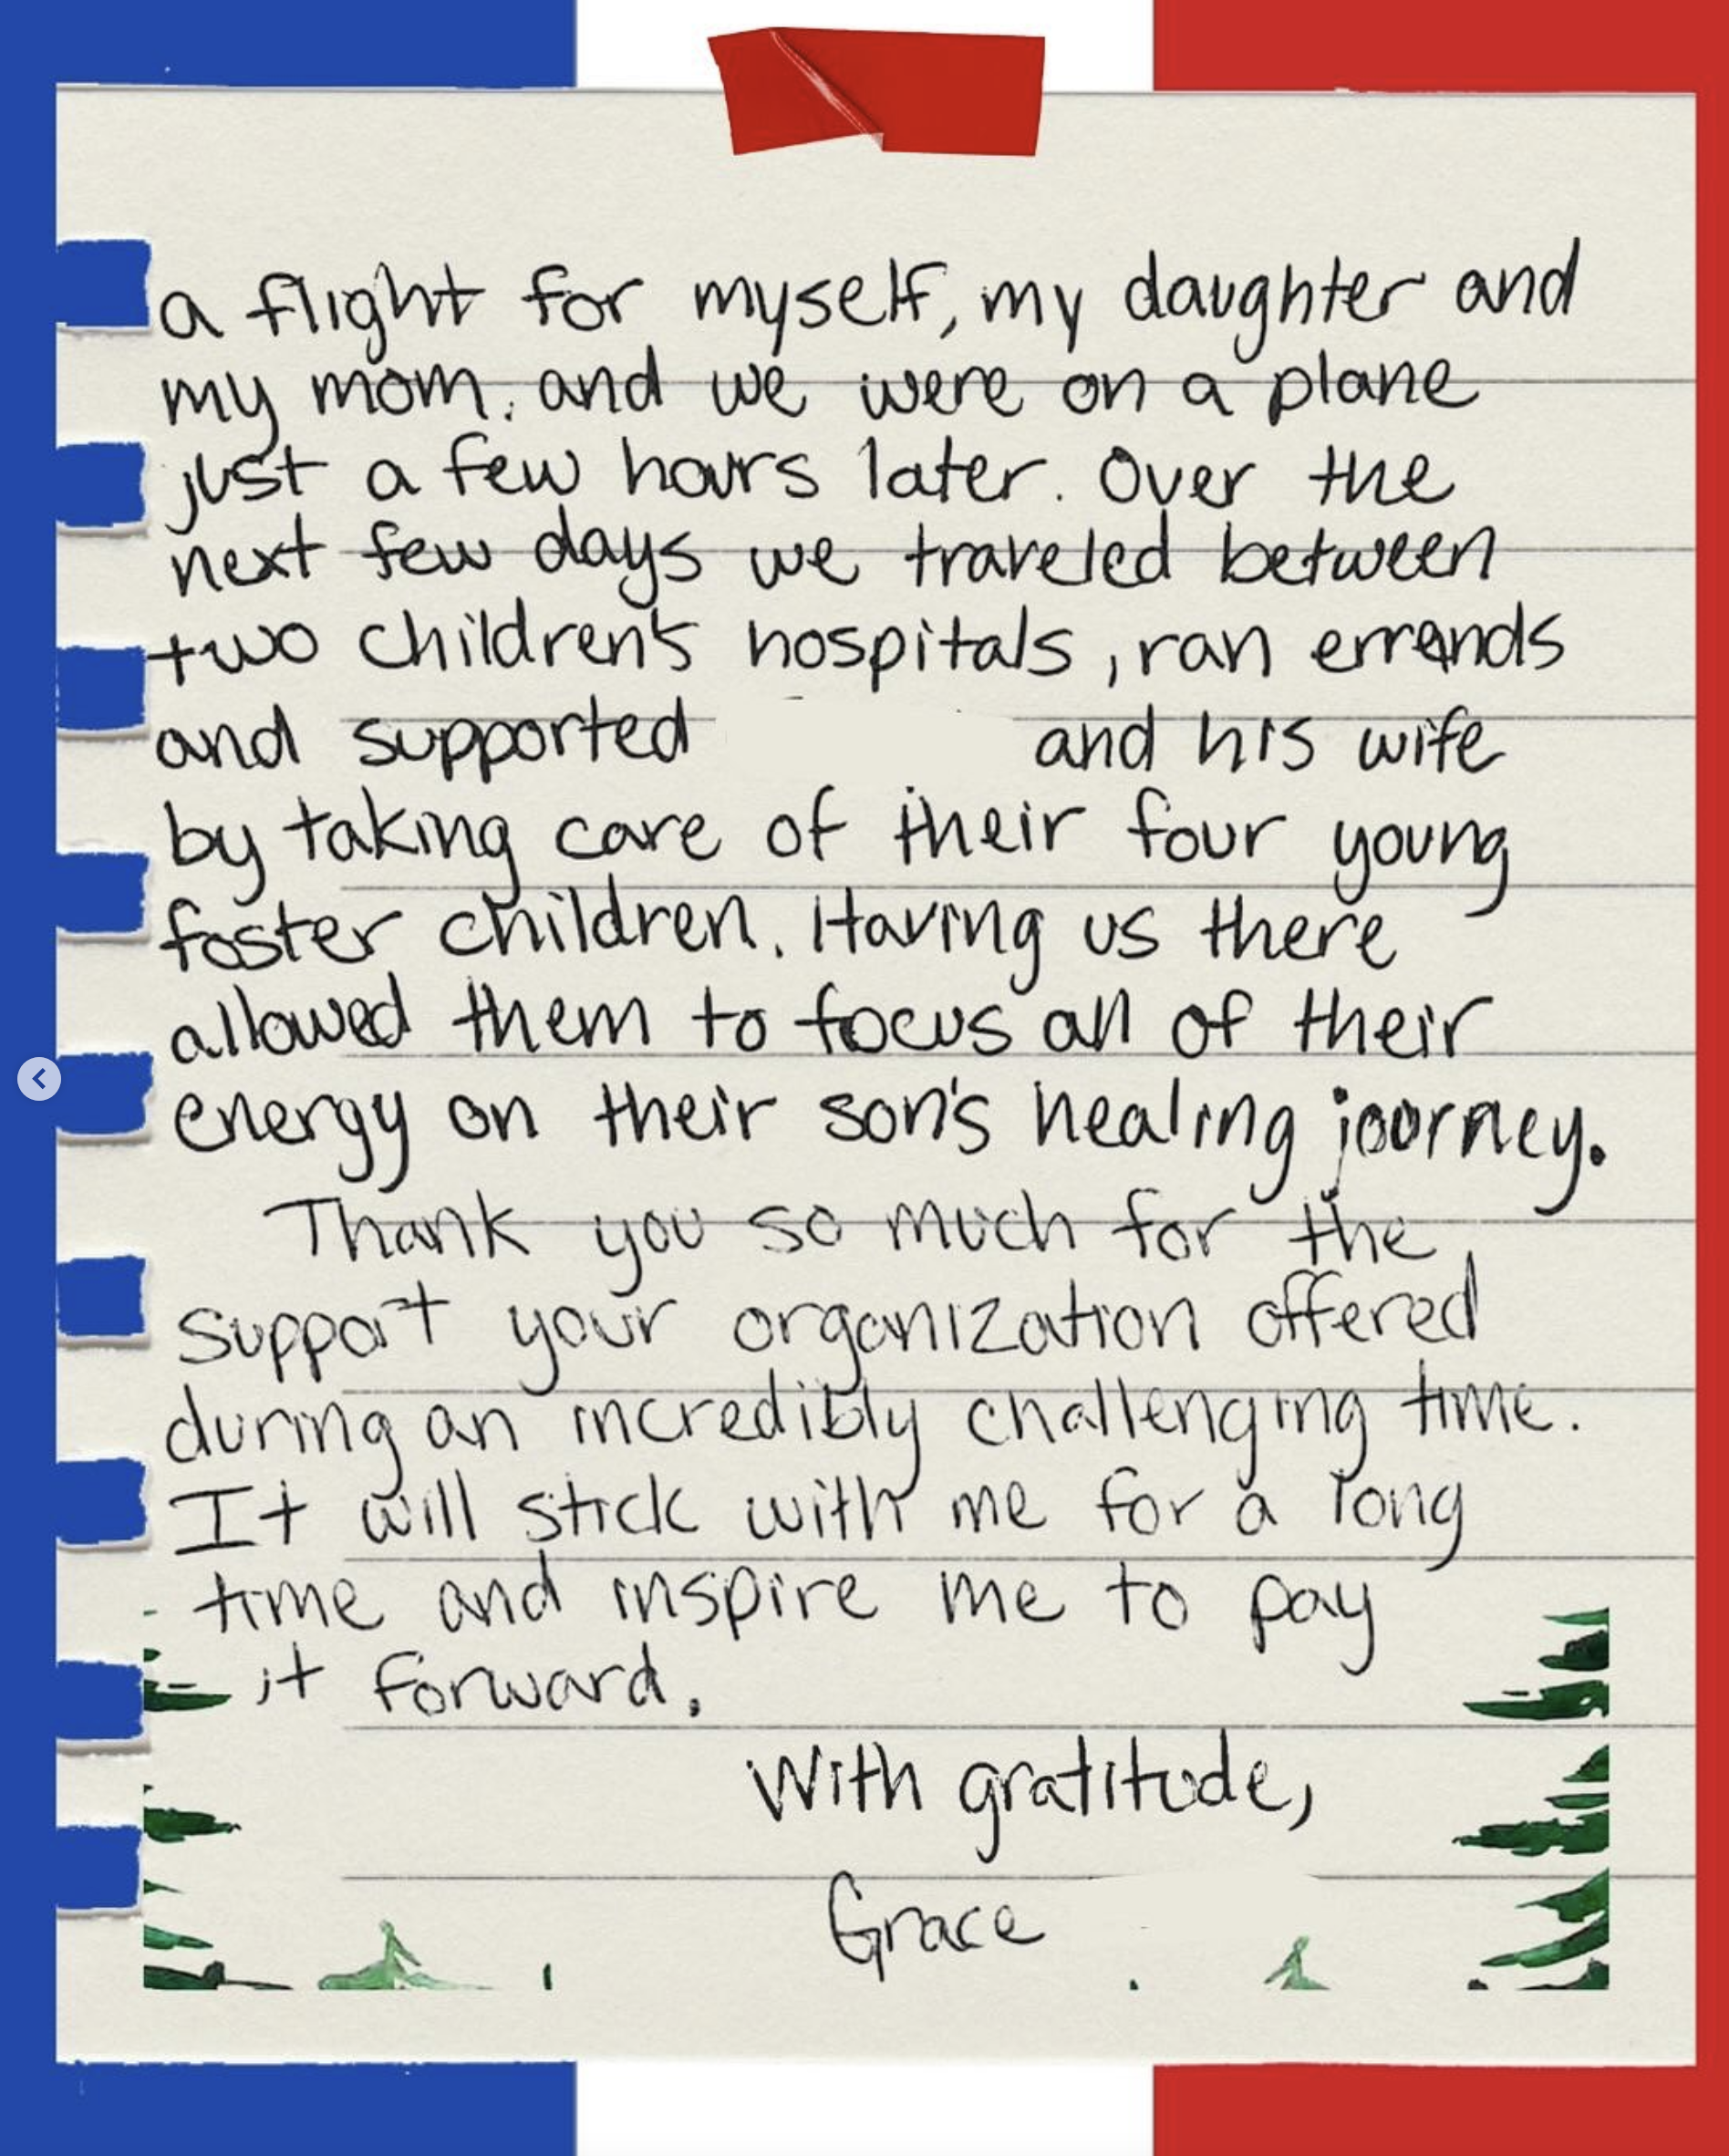 a flight for myself, my daughter and
my mom. and we were on a plane
just a few hours later. Over the
next few days we traveled between
two children's hospitals, ran errands
and supported and his wife
by taking care of their four young
foster children. Having us there
allowed them to focus all of their
energy on their son's healing journey.
Thank you so much for the
support your organization offered
during an incredibly challenging time.
It will stick with me for a long
time and inspire me to pay
it forward.
With gratitude,
Grace